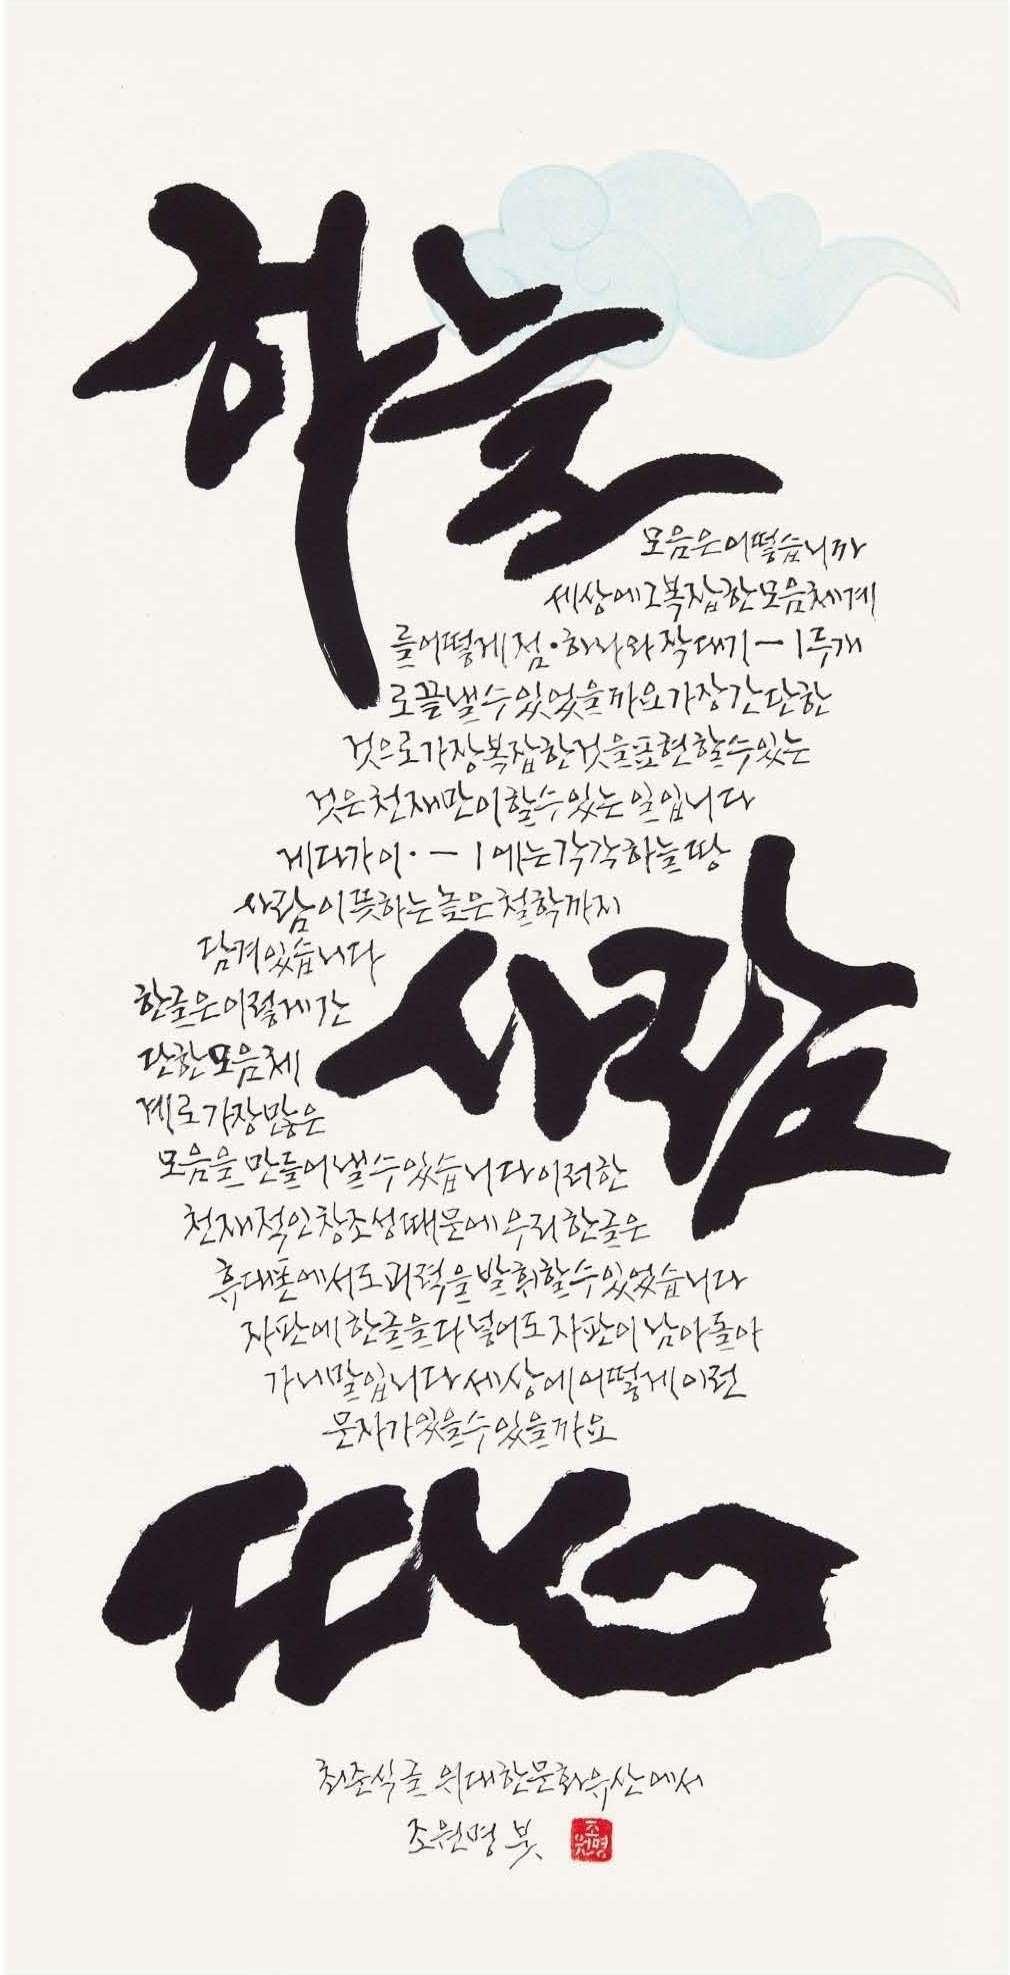 하늘
모음은어떻습니까
세상에그복잡한모음체계
를어떻게점·하나와작대기ㅡㅣ두개
로끝낼수있었을까요가장간단한
것으로가장복잡한것을표현할수있는
것은천재만이할수있는일입니다
게다가이·ㅡㅣ에는각각하늘땅
사람이뜻하는높은철학까지
담겨있습니다
한글은이렇게간
단한모음체
계로가장많은
모음을만들어낼수있습니다이러한
천재적인창조성때문에우리한글은
휴대폰에서도괴력을발휘할수있었습니다
자판에한글을다넣어도자판이남아돌아
가니말입니다세상에어떻게이런
문자가있을수있을까요
사람
땅
최준식글 위대한문화유산에서
조원명 붓
조원명